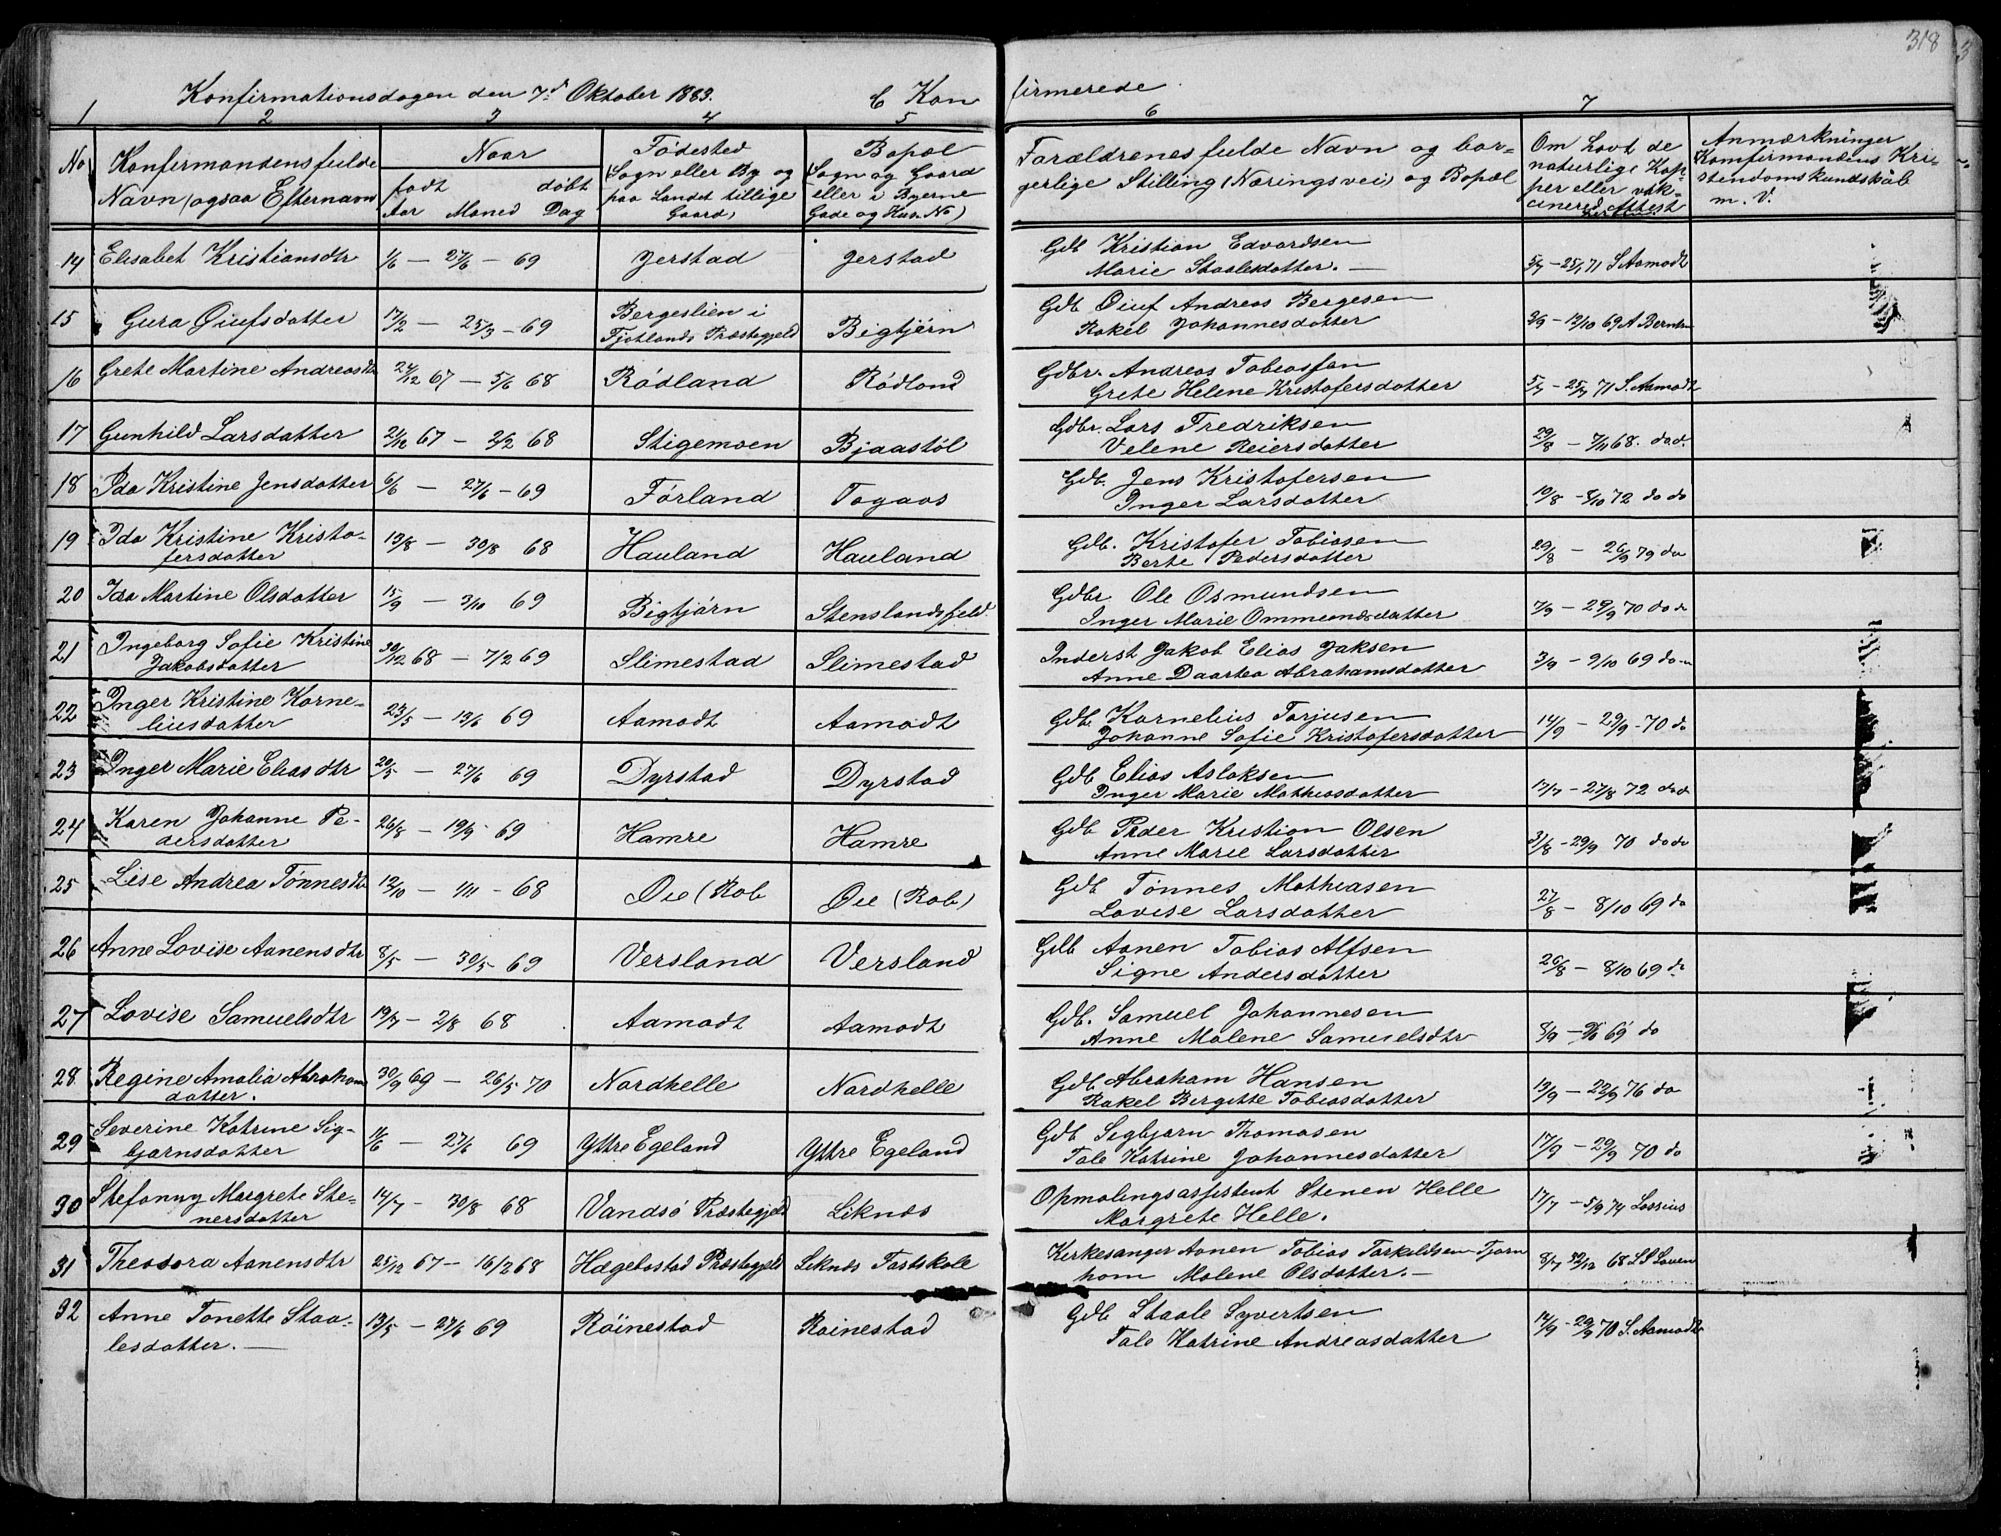 318
Konfirmationsdagen den 7d Oktober 1883. C Konfirmerede
1 2 3 4 5 6 7
No Konfirmandens fulde Navn (ogsaa Efternavn
Naar
født døbt
Aar Maned Dag
Fødested (Sogn eller By og paa Landet tillige Gaard)
Bopæl (Sogn og Gaard eller i Byerne Gade og Hus No)
Forældrenes fulde Navn og borgerlige Stilling (Næringsvei) og Bopæl
Om havt de naturlige Kopper eller vakcinered Attest
Anmærkninger Komfirmandens Kristendomskundskab m. V.
14 Elisabet Kristiansdtr 1/6 — 27/6 — 69 Jerstad Jerstad Gdb Kristian Edvardsen
Marie Staalesdatter. — 5/7 — 25/7 71 S Aamodt
15 Gura Øiufsdatter 17/2 — 25/3 — 69 Bergeslien i Fjotlands Præstegjeld Bigtjørn Gdb Øiuf Andreas Bergesen
Rakel Johannesdatter 3/9 — 12/10 69 A Berntsn
16 Grete Martine Andreasdtr 24/12 67 — 5/6 68 Rødland Rødland Gdbr. Andreas Tobiassan
Grete Helene Kristofersdatter 5/7 — 25/7 71 S. Aamodt
17 Gunhild Larsdatter 21/12 67 — 2/2 68 Stigemoen Bjaastøl Gdbr. Lars Fredriksen
Velene Reiersdatter 29/8 — 7/11 68. do d.
18 Ida Kristine Jensdatter 6/6 — 27/6 — 69 Førland Togaas Gdb. Jens Kristofersen
Inger Larsdatter 10/8 — 8/10 72 do do
19 Ida Kristine Kristofersdatter 13/8 — 30/8 68 Hauland Hauland Gdb. Kristofer Tobiasen
Berte Pedersdatter 29/8 — 26/9 79 do
20 Ida Martine Olsdatter 15/9 — 3/10 69 Bigtjørn Stenslandsfjeld Gdbr Ole Osmundsen
Inger Marie Ommundsdatter 7/9 — 29/9 70 do d
21 Ingeborg Sofie Kristine Jakobsdatter 30/12 68 — 7/2 69 Slimestad Slimestad Inderst Jakob Elias Jaksen
Anne Daartea Abrahamsdatter 3/9 — 9/10 69 do
22 Inger Kristine Korneliusdatter 23/5 — 13/6 69 Aamodt Aamodt Gdb. Kornelius Torjusen
Johanne Sofie Kristofersdatter 14/9 — 29/9 - 70 do
23 Inger Marie Eliasdtr 20/5 — 27/6 69 Dyrstad Dyrstad Gdb Elias Aslaksen
Inger Marie Mathiasdatter 17/7 — 27/8 72 do d
24 Karen Johanne Pedersdatter 26/8 — 19/9 69 Hamre Hamre Gdb Peder Kristian Olsen
Anne Marie Larsdatter 31/8 — 29/9 70 do do
25 Lise Andrea Tønnesdtr 12/10 — 1/11 — 68 Øie (Rob Øie (Rob) Gdb Tønnes Mathiasen
Lovise Larsdatter 27/8 — 8/10 69 do
26 Anne Lovise Aanensdtr 8/5 — 30/5 69 Versland Versland Gdb Aanen Tobias Alfsen
Signe Andersdatter 26/8 — 8/10 69 do
27 Lovise Samuelsdtr 19/7 — 2/8 68 Aamodt Aamodt Gdb. Samuel Johannesen
Anne Malene Samuelsdtr 8/9 — 69 do
28 Regine Amalia Abrahamdatter. 30/9 69 — 26/5 70 Nordhelle Nordhelle Gdb Abraham Hansen
Rakel Bergitte Tobiasdatter 13/9 — 22/9 76 do
29 Severine Katrine Sigbjørnsdatter 11/6 — 27/6 69 Yttre Egeland Yttre Egeland Gdb Segbjørn Thomasen
Tale Katrine Johannesdatter 17/9 — 29/9 70 do
30 Stefanny Margrete Stenersdatter 14/7 — 30/8 68 Vandsø Præstegjeld Liknes Opmalingsassistent Stenen Helle
Margrete Helle. 17/7 — 5/9 74 Lossius
31 Theodora Aanensdtr 25/12 67 — 16/2 68 Hægebostad Præstegjeld Liknes Fastskole Kirkesanger Aanen Tobias Tarkildsen Tjorn
hom Malene Olsdatter. — 8/7 32/12 68 LS Lauen
32 Anne Tonette Staalesdatter. — 13/5 — 27/6 69 Røinestad Røinestad Gdb Staale Syvertsen
Tale Katrine Andreasdatter 14/9 — 29/9 70 S. Aamodt